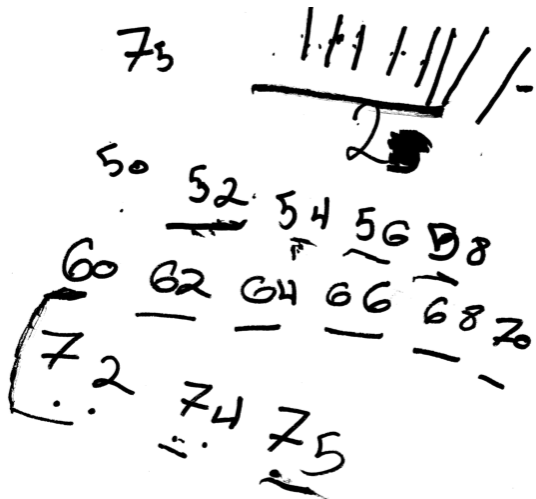 75
2
50 52 54 56 58
60 62 64 66 68 70
72 74 75